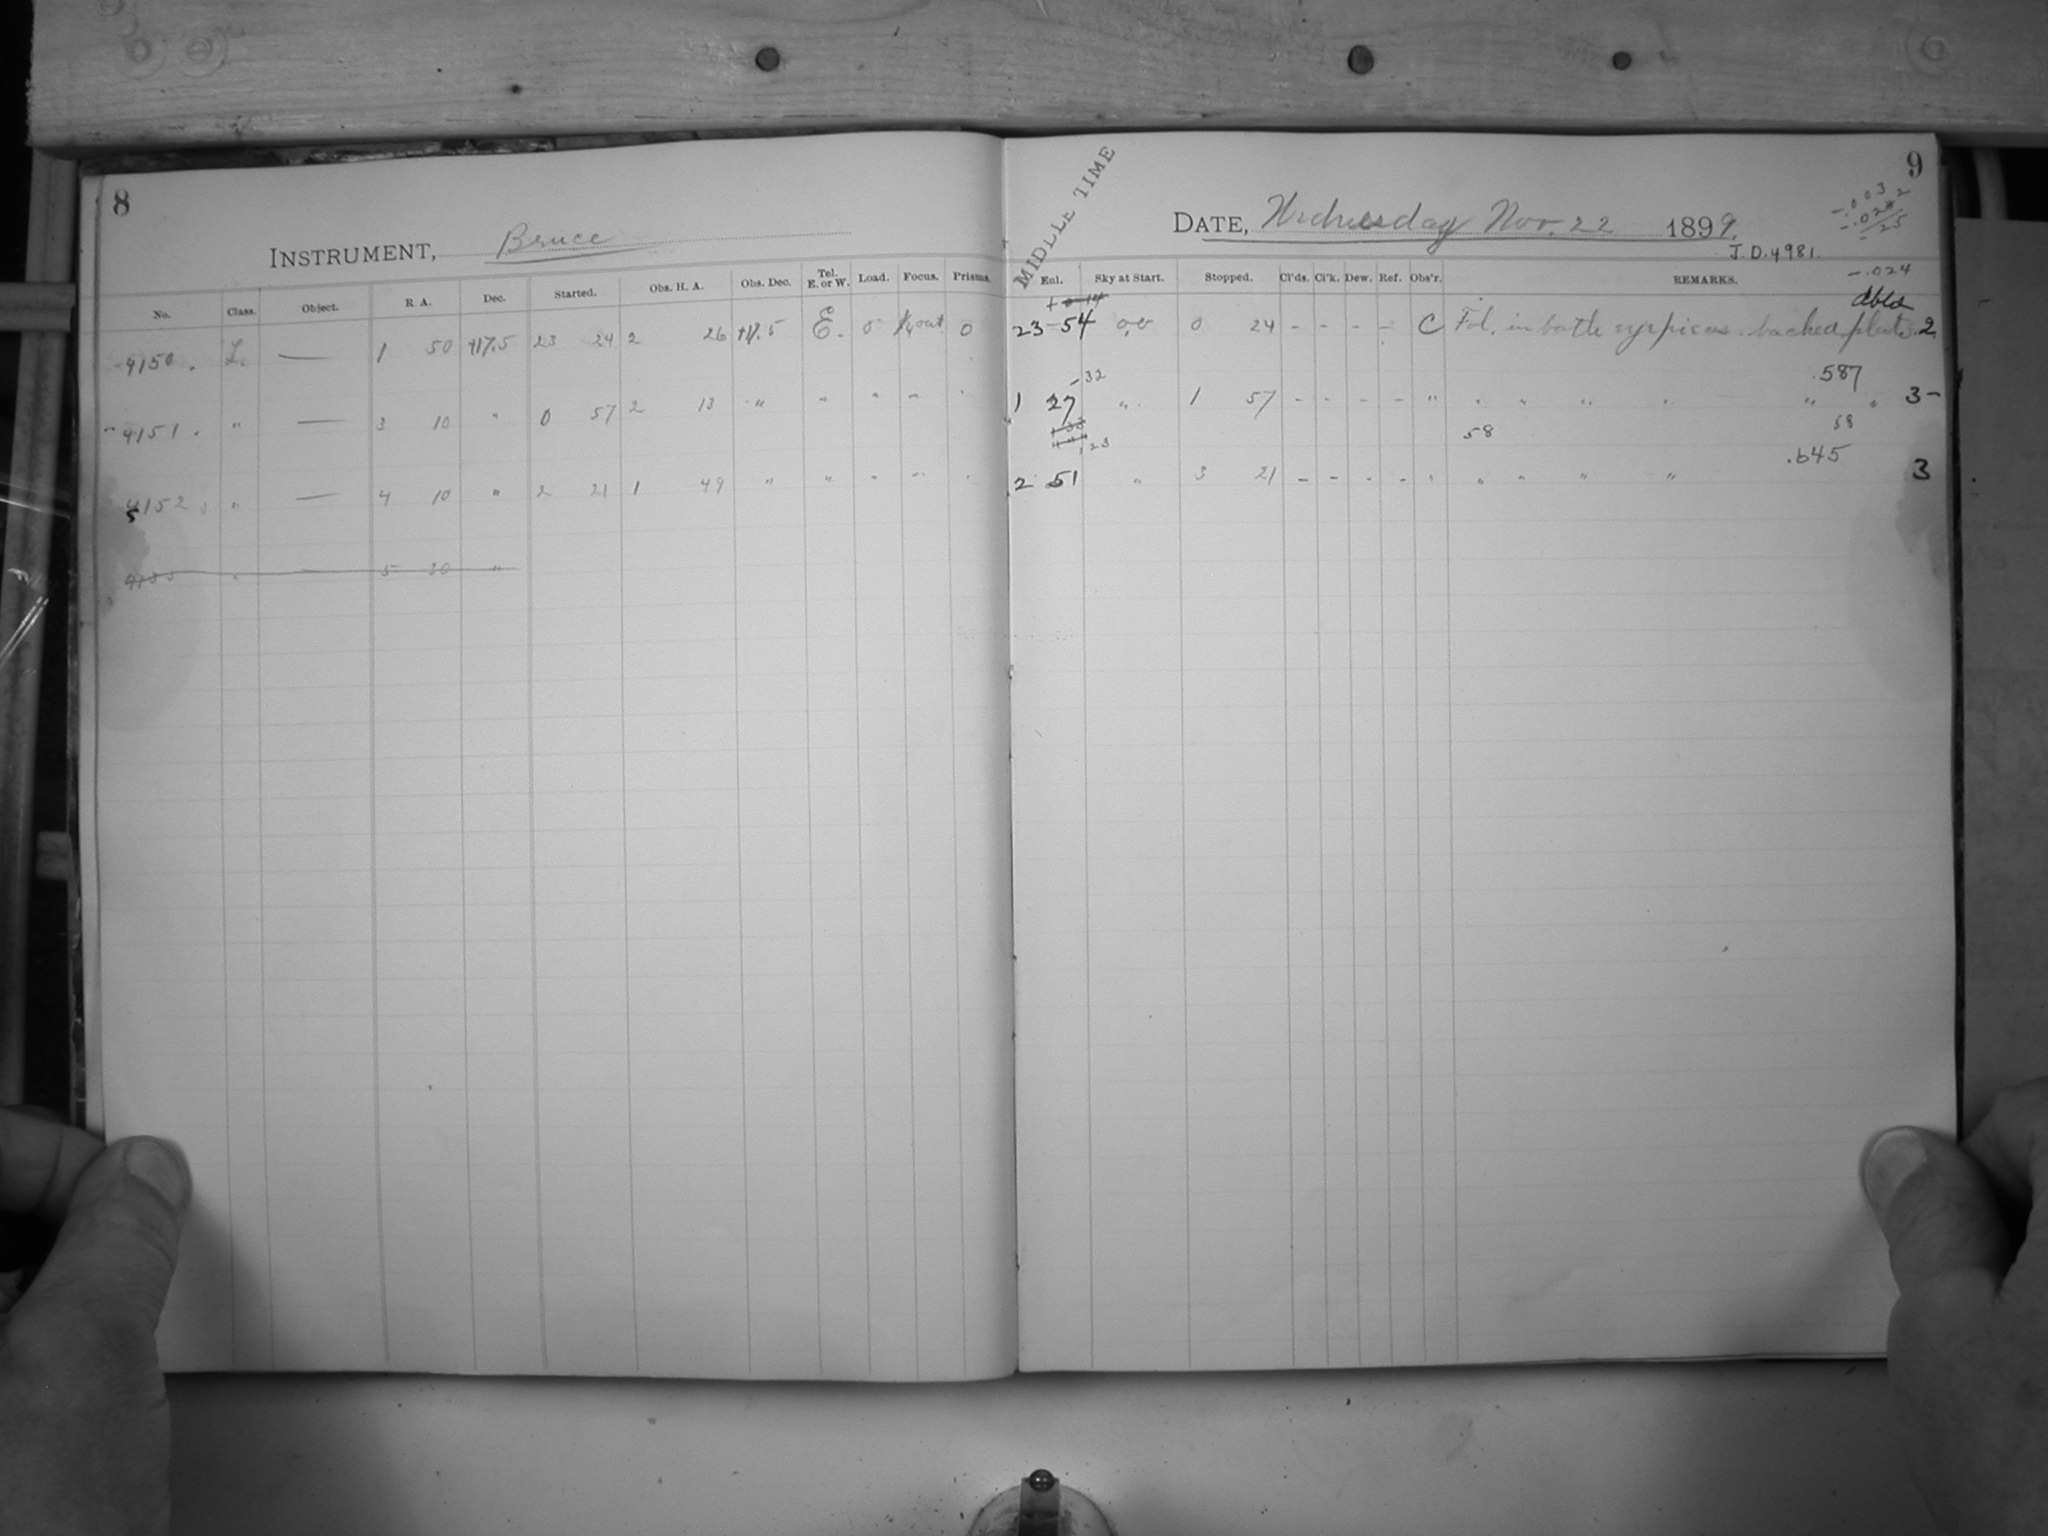 8
INSTRUMENT, Bruce
No. Class. Object. R. A. Dec. Started. Obs. H. A. Obs. Dec. Tel. E. or W. Load. Focus. Prisms.
4150. L. — 1 50 +17.5 23 24 2 26 +17.5 E. 0 0
4151. " — 3 10 " 0 57 2 13 " " " " "
4152 " — 4 10 " 2 21 1 49 " " " " "
5
4153 " — 5 30 "
9
MIDDLE TIME
-.003
DATE, Wednesday Nov. 22 1899.
J.D. 4981.
-.024
Enl. Sky at Start. Stopped. Cl'ds. Cl'k. Dew. Ref. Obs'r. REMARKS.
dbls
23 54 0 24 - - - - C Fol. in both eyepieces. backed plates. 2
-32 .587
1 27 " 1 57 - - - - " " " " " " " 3-
58 58
23 .645
2 51 " 3 21 - - - - " " " " " 3